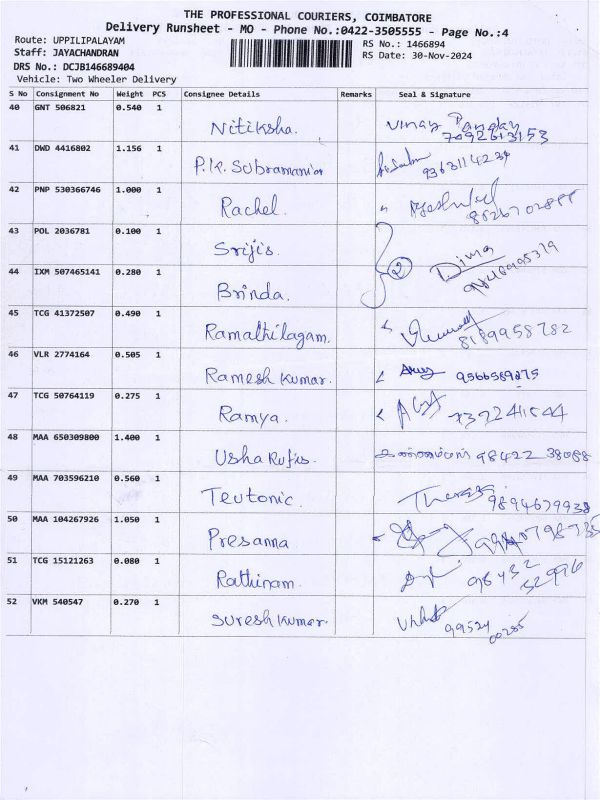 THE PROFESSIONAL COURIERS, COIMBATORE
Delivery Runsheet - MO - Phone No.:0422-3505555 - Page No.:4
Route: UPPILIPALAYAM
RS No.: 1466894
Staff: JAYACHANDRAN
RS Date: 30-Nov-2024
DRS No.: DCJB146689404
Vehicle: Two Wheeler Delivery
S No Consignment No Weight PCS Consignee Details Remarks Seal & Signature
40 GNT 506821 0.540 1 Nitiksha. Vinay Panday
7092613153
41 DWD 4416802 1.156 1 P.K. Subramanian
42 PNP 530366746 1.000 1 Rachel.
43 POL 2036781 0.100 1 Srijis. 2
44 IXM 507465141 0.280 1 Brinda.
45 TCG 41372507 0.490 1 Ramathilagam. 8189958782
46 VLR 2774164 0.505 1 Ramesh Kumar. 9566589275
47 TCG 50764119 0.275 1 Ramya.
48 MAA 650309800 1.400 1 Usha Rufis. 98422 38088
49 MAA 703596210 0.560 1 Teutonic. 9894679938
50 MAA 104267926 1.050 1 Presanna
51 TCG 15121263 0.080 1 Rathinam. 98432
52996
52 VKM 540547 0.270 1 Suresh Kumar. 99524
00285